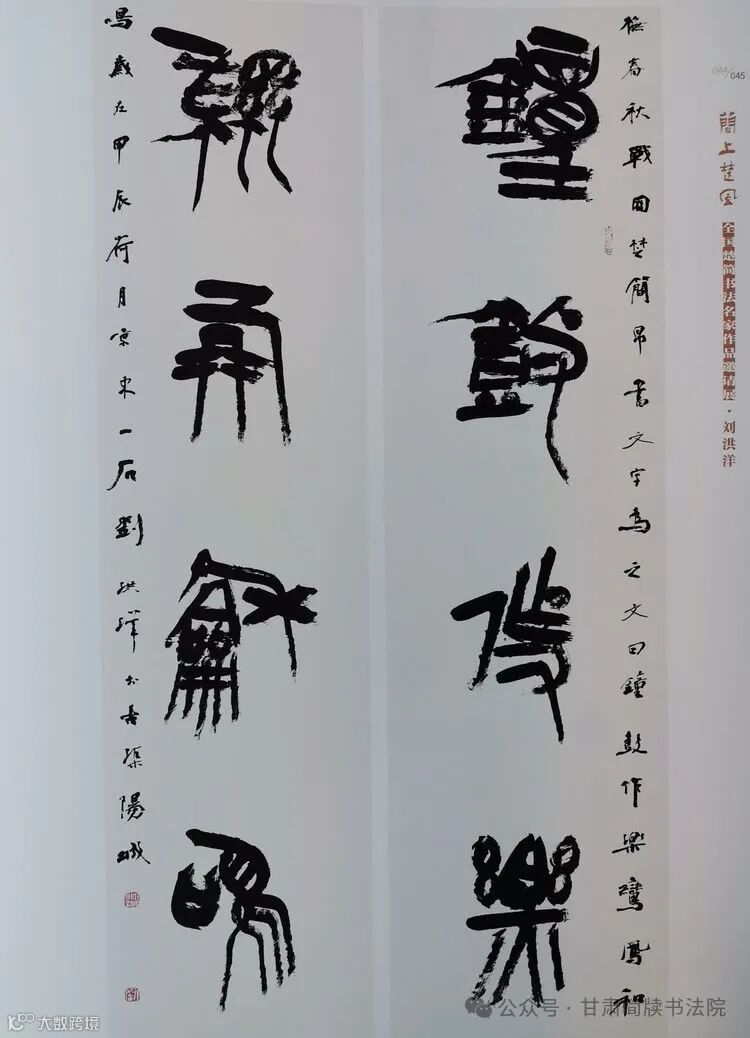 044/045
简上楚风
全国楚简书法名家作品邀请展·刘洪洋
橅春秋戰國楚簡帛書文字為之文曰鐘鼓作樂鸞鳳和
鐘鼓作樂
鸞鳳龢鳴
鳴歲在甲辰荷月京東一石劉洪洋書古渠陽城
公众号·甘肃简牍书法院
大数跨境